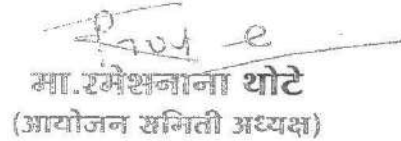 मा.रमेशनाना थोटे
(आयोजन समिती अध्यक्ष)